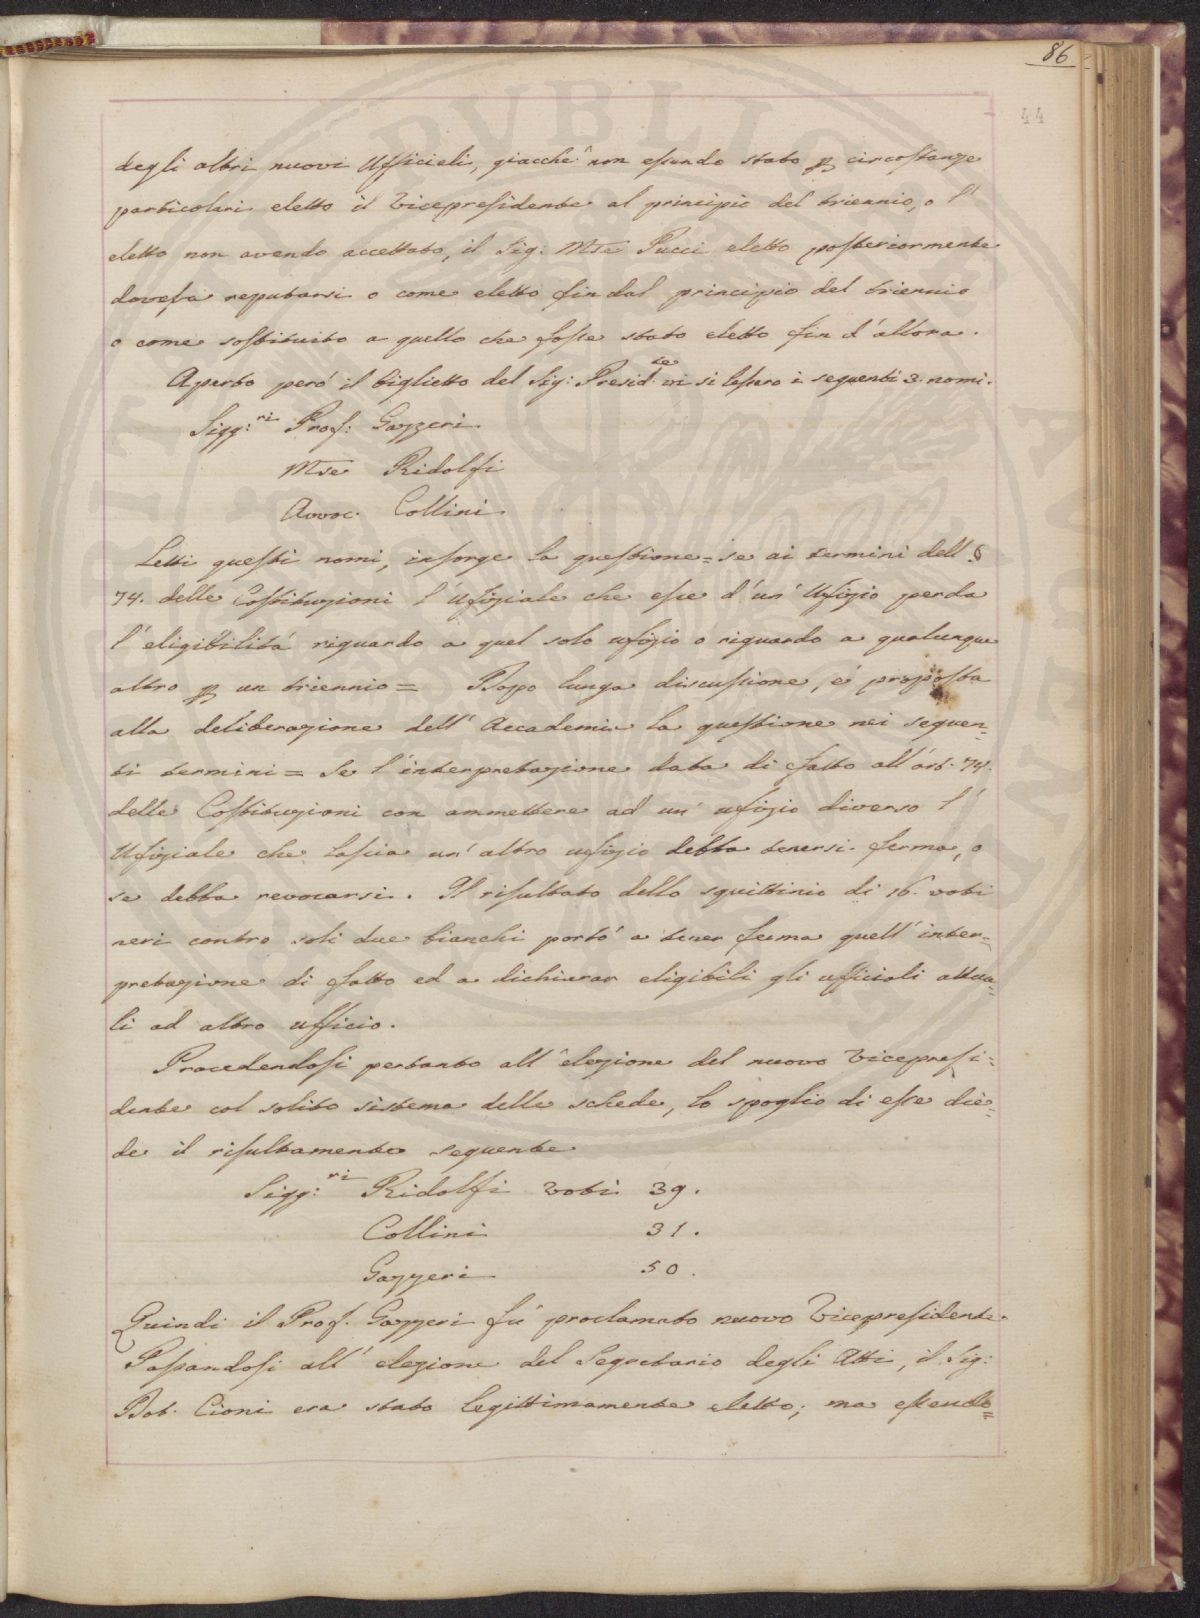 86
44
degli altri nuovi Ufficiali, giacchè non essendo stato p circostanze
particolari eletto il Vicepresidente al principio del triennio, o l'
eletto non avendo accettato, il Sig: Mse Pucci eletto posteriormente
dovesse reputarsi o come eletto fin dal principio del triennio
o come sostituito a quello che fosse stato eletto fin d'allora.
Aperto però il biglietto del Sig: Presid.te vi si lessero i seguenti 3. nomi.
Sigg:ri Prof: Gazzeri
Mse Ridolfi
Avvoc. Collini
Letti questi nomi, insorge la questione = se ai termini dell §
74. delle Costituzioni l'Ufiziale che esce d'un' Ufizio perda
l'eligibilità riguardo a quel solo ufizio o riguardo a qualunque
altro p un triennio = Dopo lunga discussione, è proposta
alla deliberazione dell'Accademia la questione nei seguen=
ti termini = Se l'interpretazione data di fatto all'art. 74.
delle Costituzioni con ammettere ad un' ufizio diverso l'
Ufiziale che lascia un'altro ufizio debba tenersi ferma, o
se debba revocarsi. Il risultato dello squittinio di 16. voti
neri contro soli due bianchi portò a tener ferma quell'inter=
pretazione di fatto ed a dichiarar eligibili gli ufficiali attua=
li ad altro ufficio.
Procedendosi pertanto all'elezione del nuovo Vicepresi=
dente col solito sistema delle schede, lo spoglio di esse die=
de il risultamento seguente
Sigg:ri Ridolfi voti 39.
Collini 31.
Gazzeri 50.
Quindi il Prof. Gazzeri fù proclamato nuovo Vicepresidente.
Passandosi all'elezione del Segretario degli Atti, il Sig:
Dot. Cioni era stato legittimamente eletto; ma essendo=